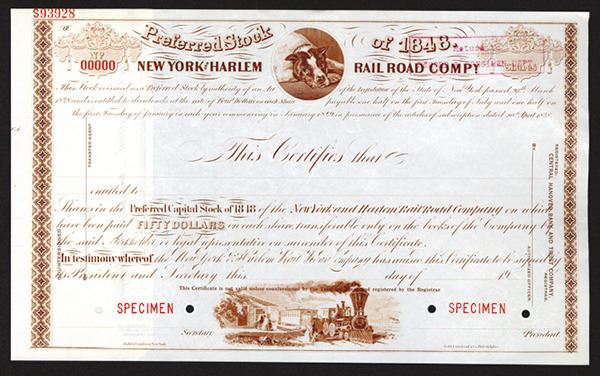 S93928
Preferred Stock of 1848.
No 00000
NEW YORK AND HARLEM RAIL ROAD COMPY
Return
SPECIMEN DEPT.
This Stock is issued as a Preferred Stock by authority of an Act of the Legislature of the State of New York passed 29th March
1848 and is entitled to dividends at the rate of Four Dollars on each Share payable one half on the first Tuesday of July and one half on
the first Tuesday of January in each year commencing in January 1849 in pursuance of the articles of subscription dated April 1848.
TRANSFER AGENT
This Certifies that
REGISTERED:
CENTRAL HANOVER BANK AND TRUST COMPANY,
REGISTRAR.
BY
AUTHORIZED OFFICER.
entitled to
Shares in the Preferred Capital Stock of 1848 of the New York and Harlem Rail Road Company on which
have been paid FIFTY DOLLARS on each share transferable only on the books of the Company by
the said Stockholder or legal representative on surrender of this Certificate.
In testimony whereof the New York & Harlem Rail Road Company has cause this Certificate to be signed by
its President and Secretary this day of 19
This Certificate is not valid unless countersigned by the Transfer Agent and registered by the Registrar
SPECIMEN
SPECIMEN
Secretary
President